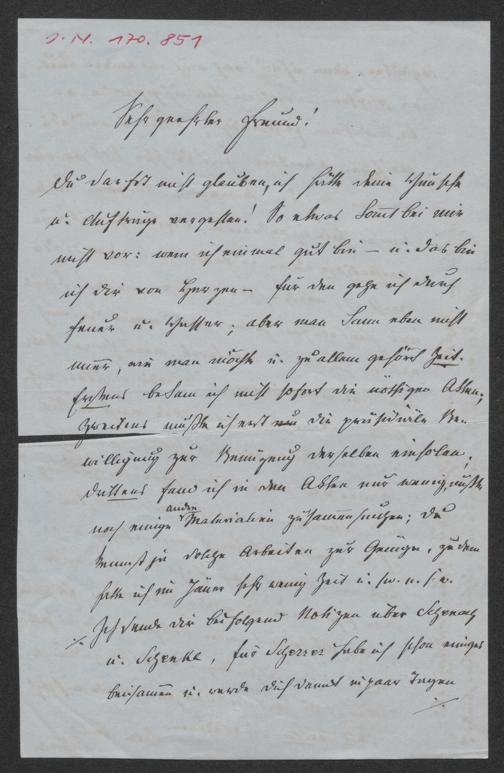 I. N. 170.851
Sehr geehrter Freund!
Du darfst nicht glauben, ich hätte deine Wünsche
u. Aufträge vergessen! So etwas kommt bei mir
nicht vor: wem ich einmal gut bin – u. das bin
ich dir von Herzen – für den gehe ich durch
Feuer u. Wasser; aber man kann eben nicht
immer, wie man möchte u. zu allem gehört Zeit.
Erstens bekam ich nicht sofort die nöthigen Akten;
zweitens mußte ich erst die präsidiale Be-
willigung zur Benützung derselben einholen,
drittens fand ich in den Akten nur wenig, mußte
noch einige andre Materialien zusammensuchen; du
kennst ja solche Arbeiten zur Genüge, zudem
hatte ich im Jänner sehr wenig Zeit u. s. w. u. s. w.
Ich sende dir beifolgend Notizen über Schenach
u. Schenkl, für Scherer habe ich schon einiges
beisammen u. werde dich damit in paar Tagen